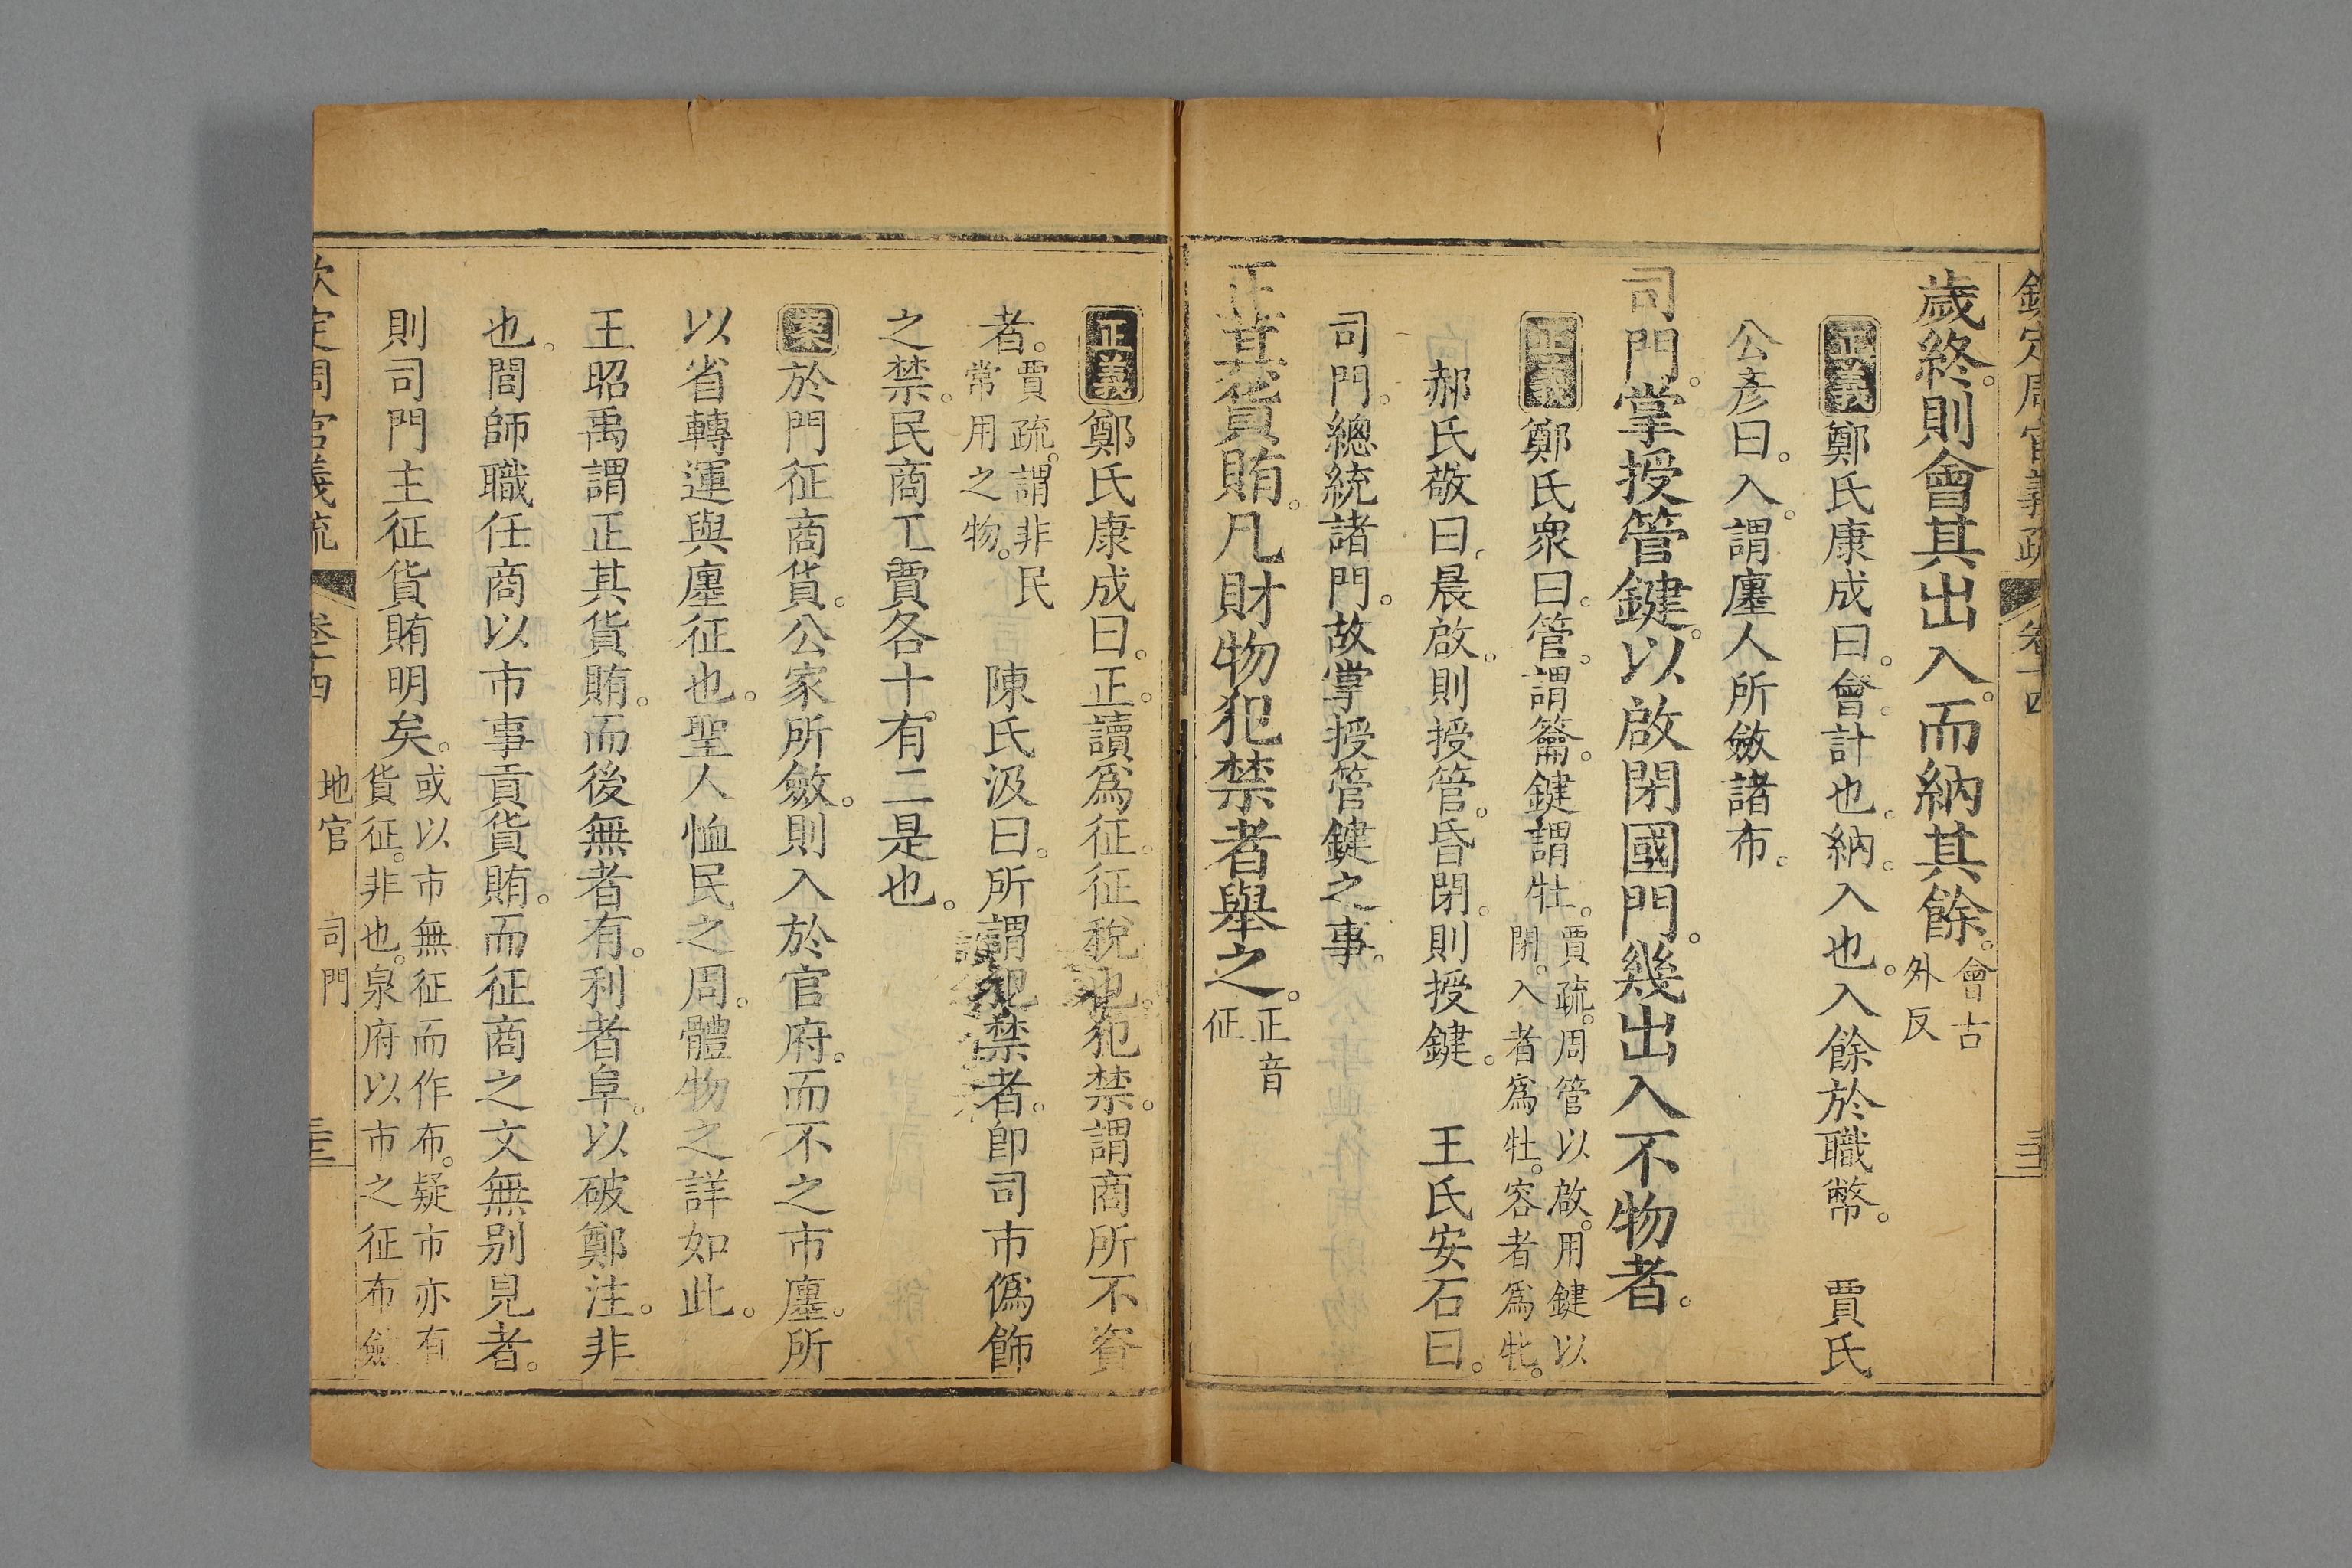 欽定周官義疏 卷十四
歲終。則會其出入。而納其餘。會古外反
正義 鄭氏康成曰。會。計也。納。入也。入餘於職幣。 賈氏
公彥曰。入。謂廛人所斂諸布。
司門。掌授管鍵。以啟閉國門。幾出入不物者。
正義 鄭氏眾曰。管。謂籥。鍵謂牡。賈疏。周管以啟。用鍵以閉。入者爲牡。容者爲牝。
郝氏敬曰。晨啟。則授管。昏閉。則授鍵。 王氏安石曰。
司門。總統諸門。故掌授管鍵之事。
正其貨賄。凡財物犯禁者舉之。正音征
正義 鄭氏康成曰。正。讀爲征。征。稅也。犯禁。謂商所不資
者。賈疏。謂非民常用之物。 陳氏汲曰。所謂犯禁者。卽司市僞飾
之禁。民商工賈各十。有二是也。
案 於門征商貨。公家所斂。則入於官府。而不之市廛。所
以省轉運與廛征也。聖人恤民之周。體物之詳如此。
王昭禹謂正其貨賄。而後無者有。利者阜。以破鄭注。非
也。閭師職任商以市事貢貨賄。而征商之文無別見者。
則司門主征貨賄明矣。或以市無征而作布。疑市亦有貨征。非也。泉府以市之征布斂
欽定周官義疏 卷十四 地官 司門